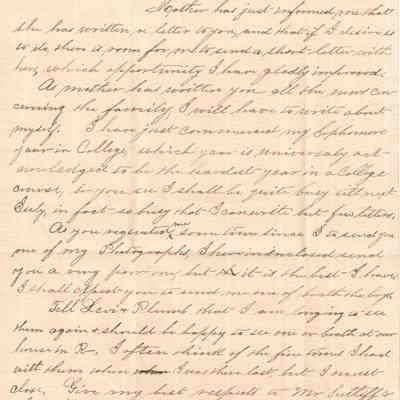 Mother has just informed me that
she has written a letter to you, and that if I desire so
to do, there is room for me to send a short letter with
hers, which opportunity I have gladly improved.
As mother has written you all the news con-
cerning the family, I will have to write about
myself. I have just commenced my Sophomore
year in College, which year is universaly ack-
nowledged to be the hardest year in a College
course, so you see I shall be quite busy until next
July, in fact so busy that I can write but few letters.
As you requested me some time since I to send you
one of my Photographs, I have inclosed send
you a very poor one, but it is the best I have
I shall expect you to send me one of both the boys
Tell Levi & Plumb that I am longing to see
them again & should be happy to see one or both at our
house in R. I often think of the fine times I had
with them when I was there last but I must
close. Give my best respects to Mr Sutliff &